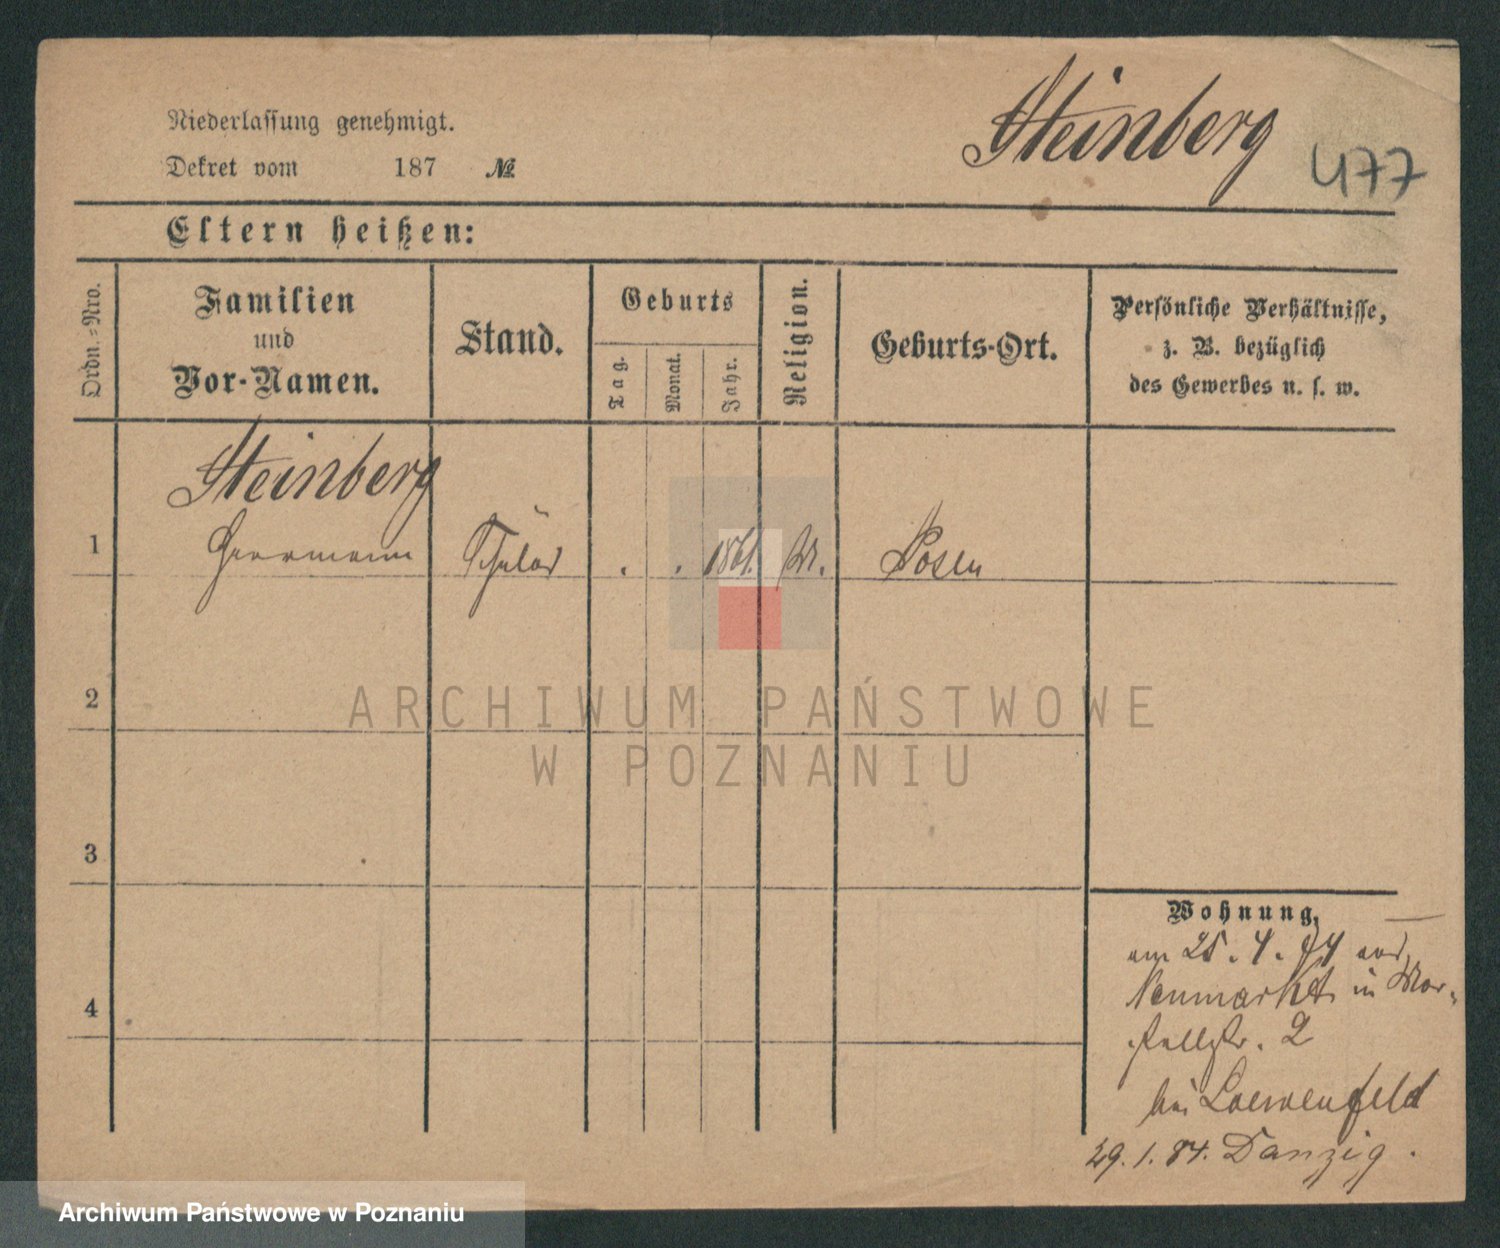 Steinberg
477
Niederlassung genehmigt.
Dekret vom 187 №
Eltern heißen:
Ordn.-Nro.
Familien
und
Vor-Namen.
Stand.
Geburts
Tag.
Monat.
Jahr.
Religion.
Geburts-Ort.
Persönliche Verhältnisse,
z. B. bezüglich
des Gewerbes u. s. w.
Steinberg
1 Herrmann Schüler . . 1861. M. Posen
2
3
4
Wohnung,
am 25. 4. 74 aus
Neumarkt in
2
bei Loewenfeld
29. 1. 84. Danzig.
ARCHIWUM PAŃSTWOWE
W POZNANIU
Archiwum Państwowe w Poznaniu